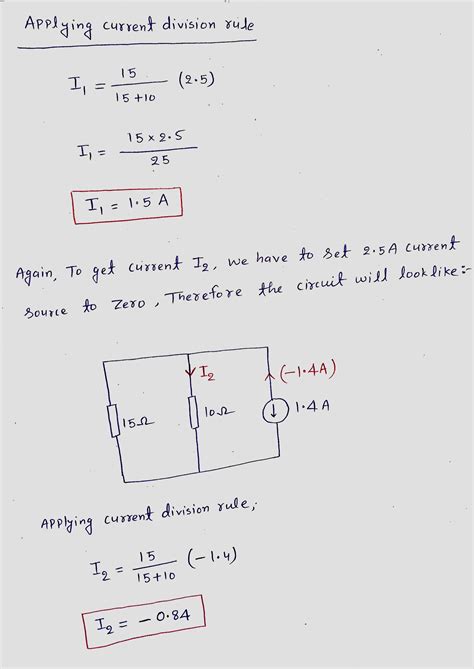 Applying current division rule
I₁ = 15 / 15+10 (2.5)
I₁ = 15 × 2.5 / 25
I₁ = 1.5 A
Again, To get current I₂, we have to set 2.5A current
source to zero, Therefore the circuit will look like:-
I₂ (-1.4A)
15Ω 10Ω 1.4 A
Applying current division rule;
I₂ = 15 / 15+10 (-1.4)
I₂ = - 0.84